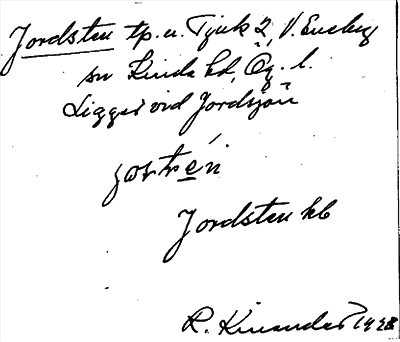 Jordsten tp. u. Tjuk 2, V. Eneby
sn Kinda hd, Ög. l.
Ligger vid Jordsjön
Jordsten kb
R. Kinander 1928